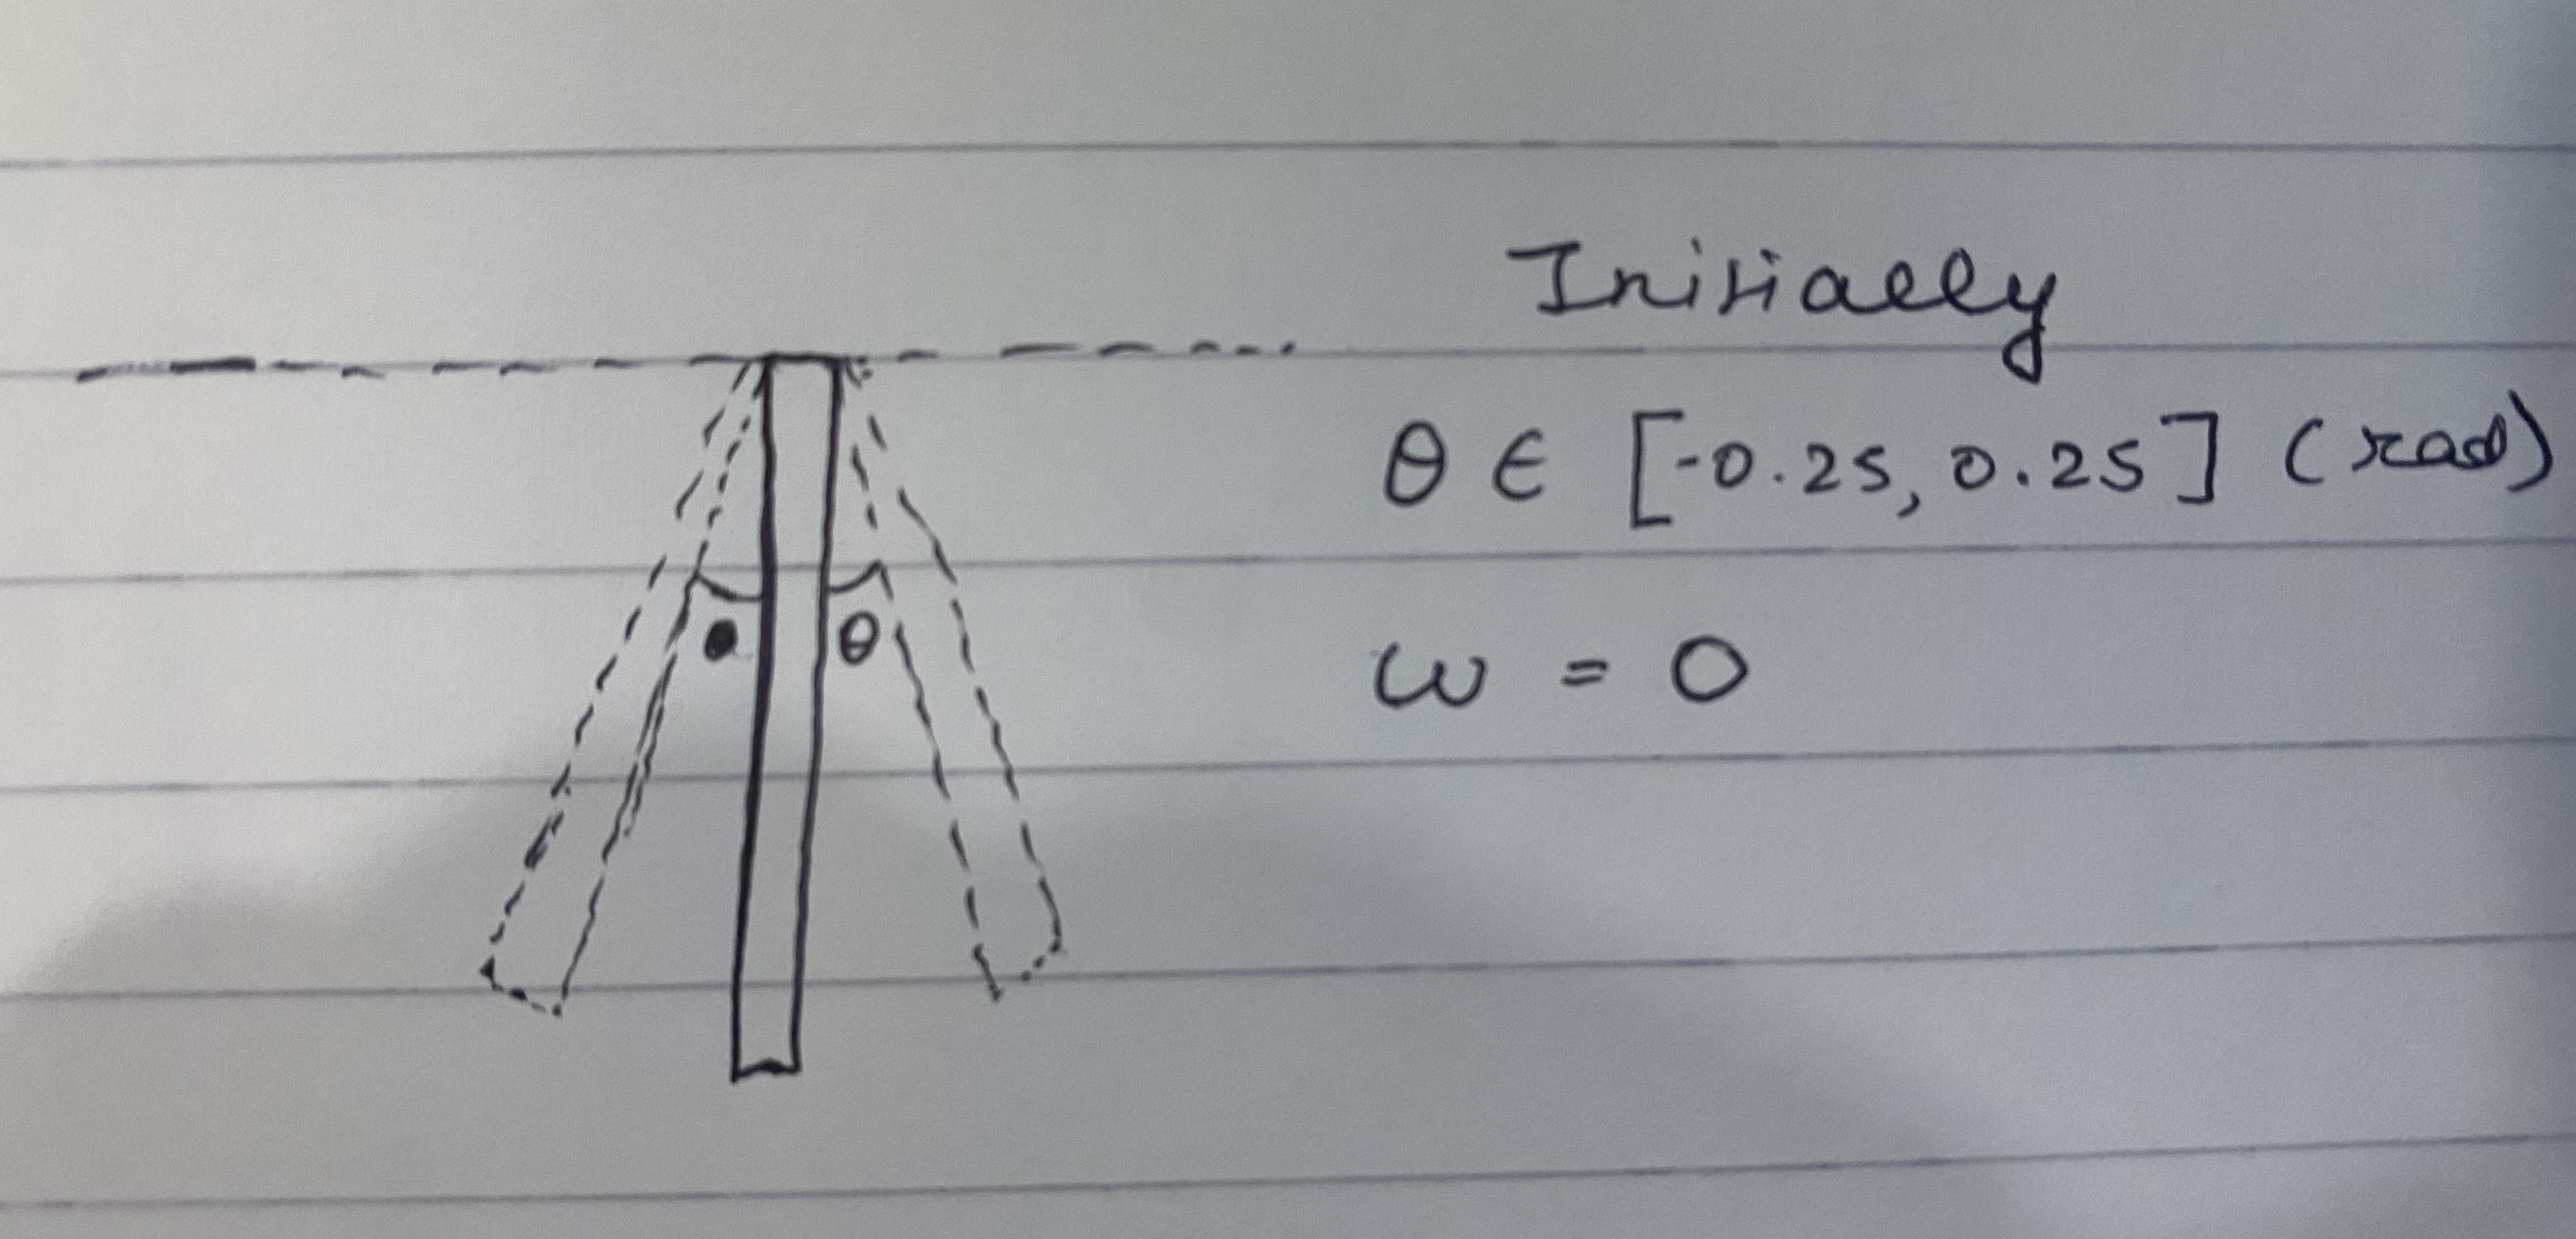 Initially
θ ∈ [-0.25, 0.25] (rad)
θ
ω = 0